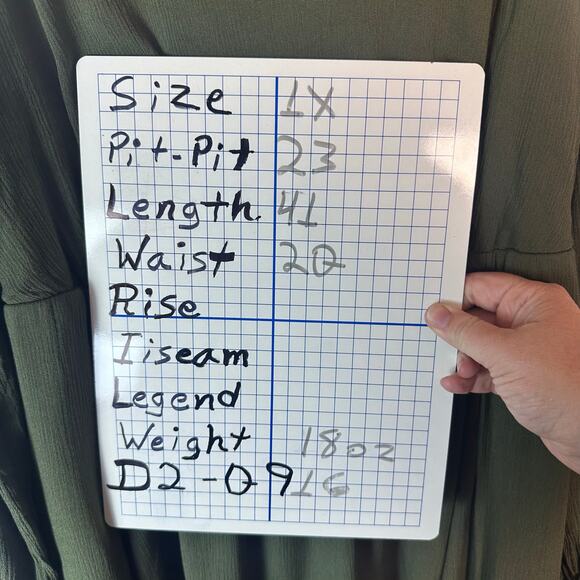 Size 1X
Pit-Pit 23
Length. 41
Waist 20
Rise
Iiseam
Legend
Weight 18oz
D2-0916